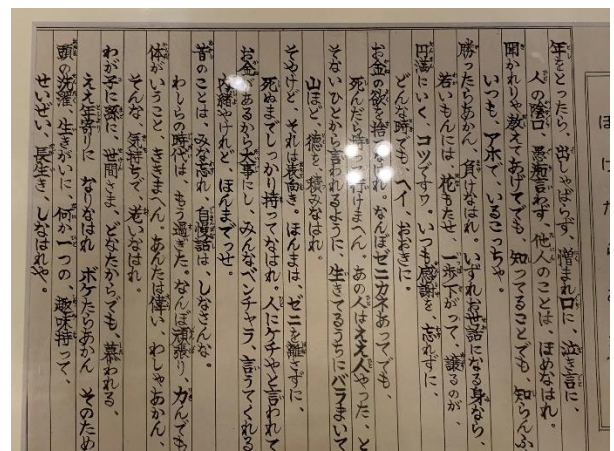 ぼけたらあかん
年をとったら、出しゃばらず、憎まれ口に、泣き言に、
人の陰口、愚痴言わず、他人のことは、ほめなはれ。
聞かれりゃ教えてあげてでも、知ってることでも、知らんふり
いつも、アホで、いるこっちゃ。
勝ったらあかん、負けなはれ、いずれお世話になる身なら、
若いもんには、花もたせ、一歩下がって、譲るのが、
円満にいく、コツですワ。いつも感謝を、忘れずに、
どんな時でも、ヘイ、おおきに。
お金の欲を捨てなはれ。なんぼゼニカネあってでも、
死んだら持って行けまへん。あの人はええ人やった、と
そないひとから言われるように、生きてるうちにバラまいて
山ほど、徳を、積みなはれ。
そやけど、それは表向き。ほんまは、ゼニを離さずに、
死ぬまでしっかり持ってなはれ。人にケチやと言われても
お金があるから大事にし、みんなベンチャラ、言うてくれる
内緒やけれど、ほんまでっせ。
昔のことは、みな忘れ、自慢話は、しなさんな。
わしらの時代は、もう過ぎた。なんぼ頑張り、力んでも
体がいうこと、ききまへん。あんたは偉い、わしゃあかん、
そんな、気持ちで、老いなはれ。
わが子に孫に、世間さま、どなたからでも、慕われる、
ええ年寄りに、なりなはれ ボケたらあかん そのため
頭の洗濯、生きがいに、何か一つの、趣味持って、
せいぜい、長生き、しなはれや。